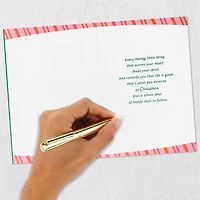 Every merry, little thing
that warms your heart,
feeds your spirit,
and reminds you that life is good...
that's what you deserve
at Christmas
plus a whole year
of happy days to follow.